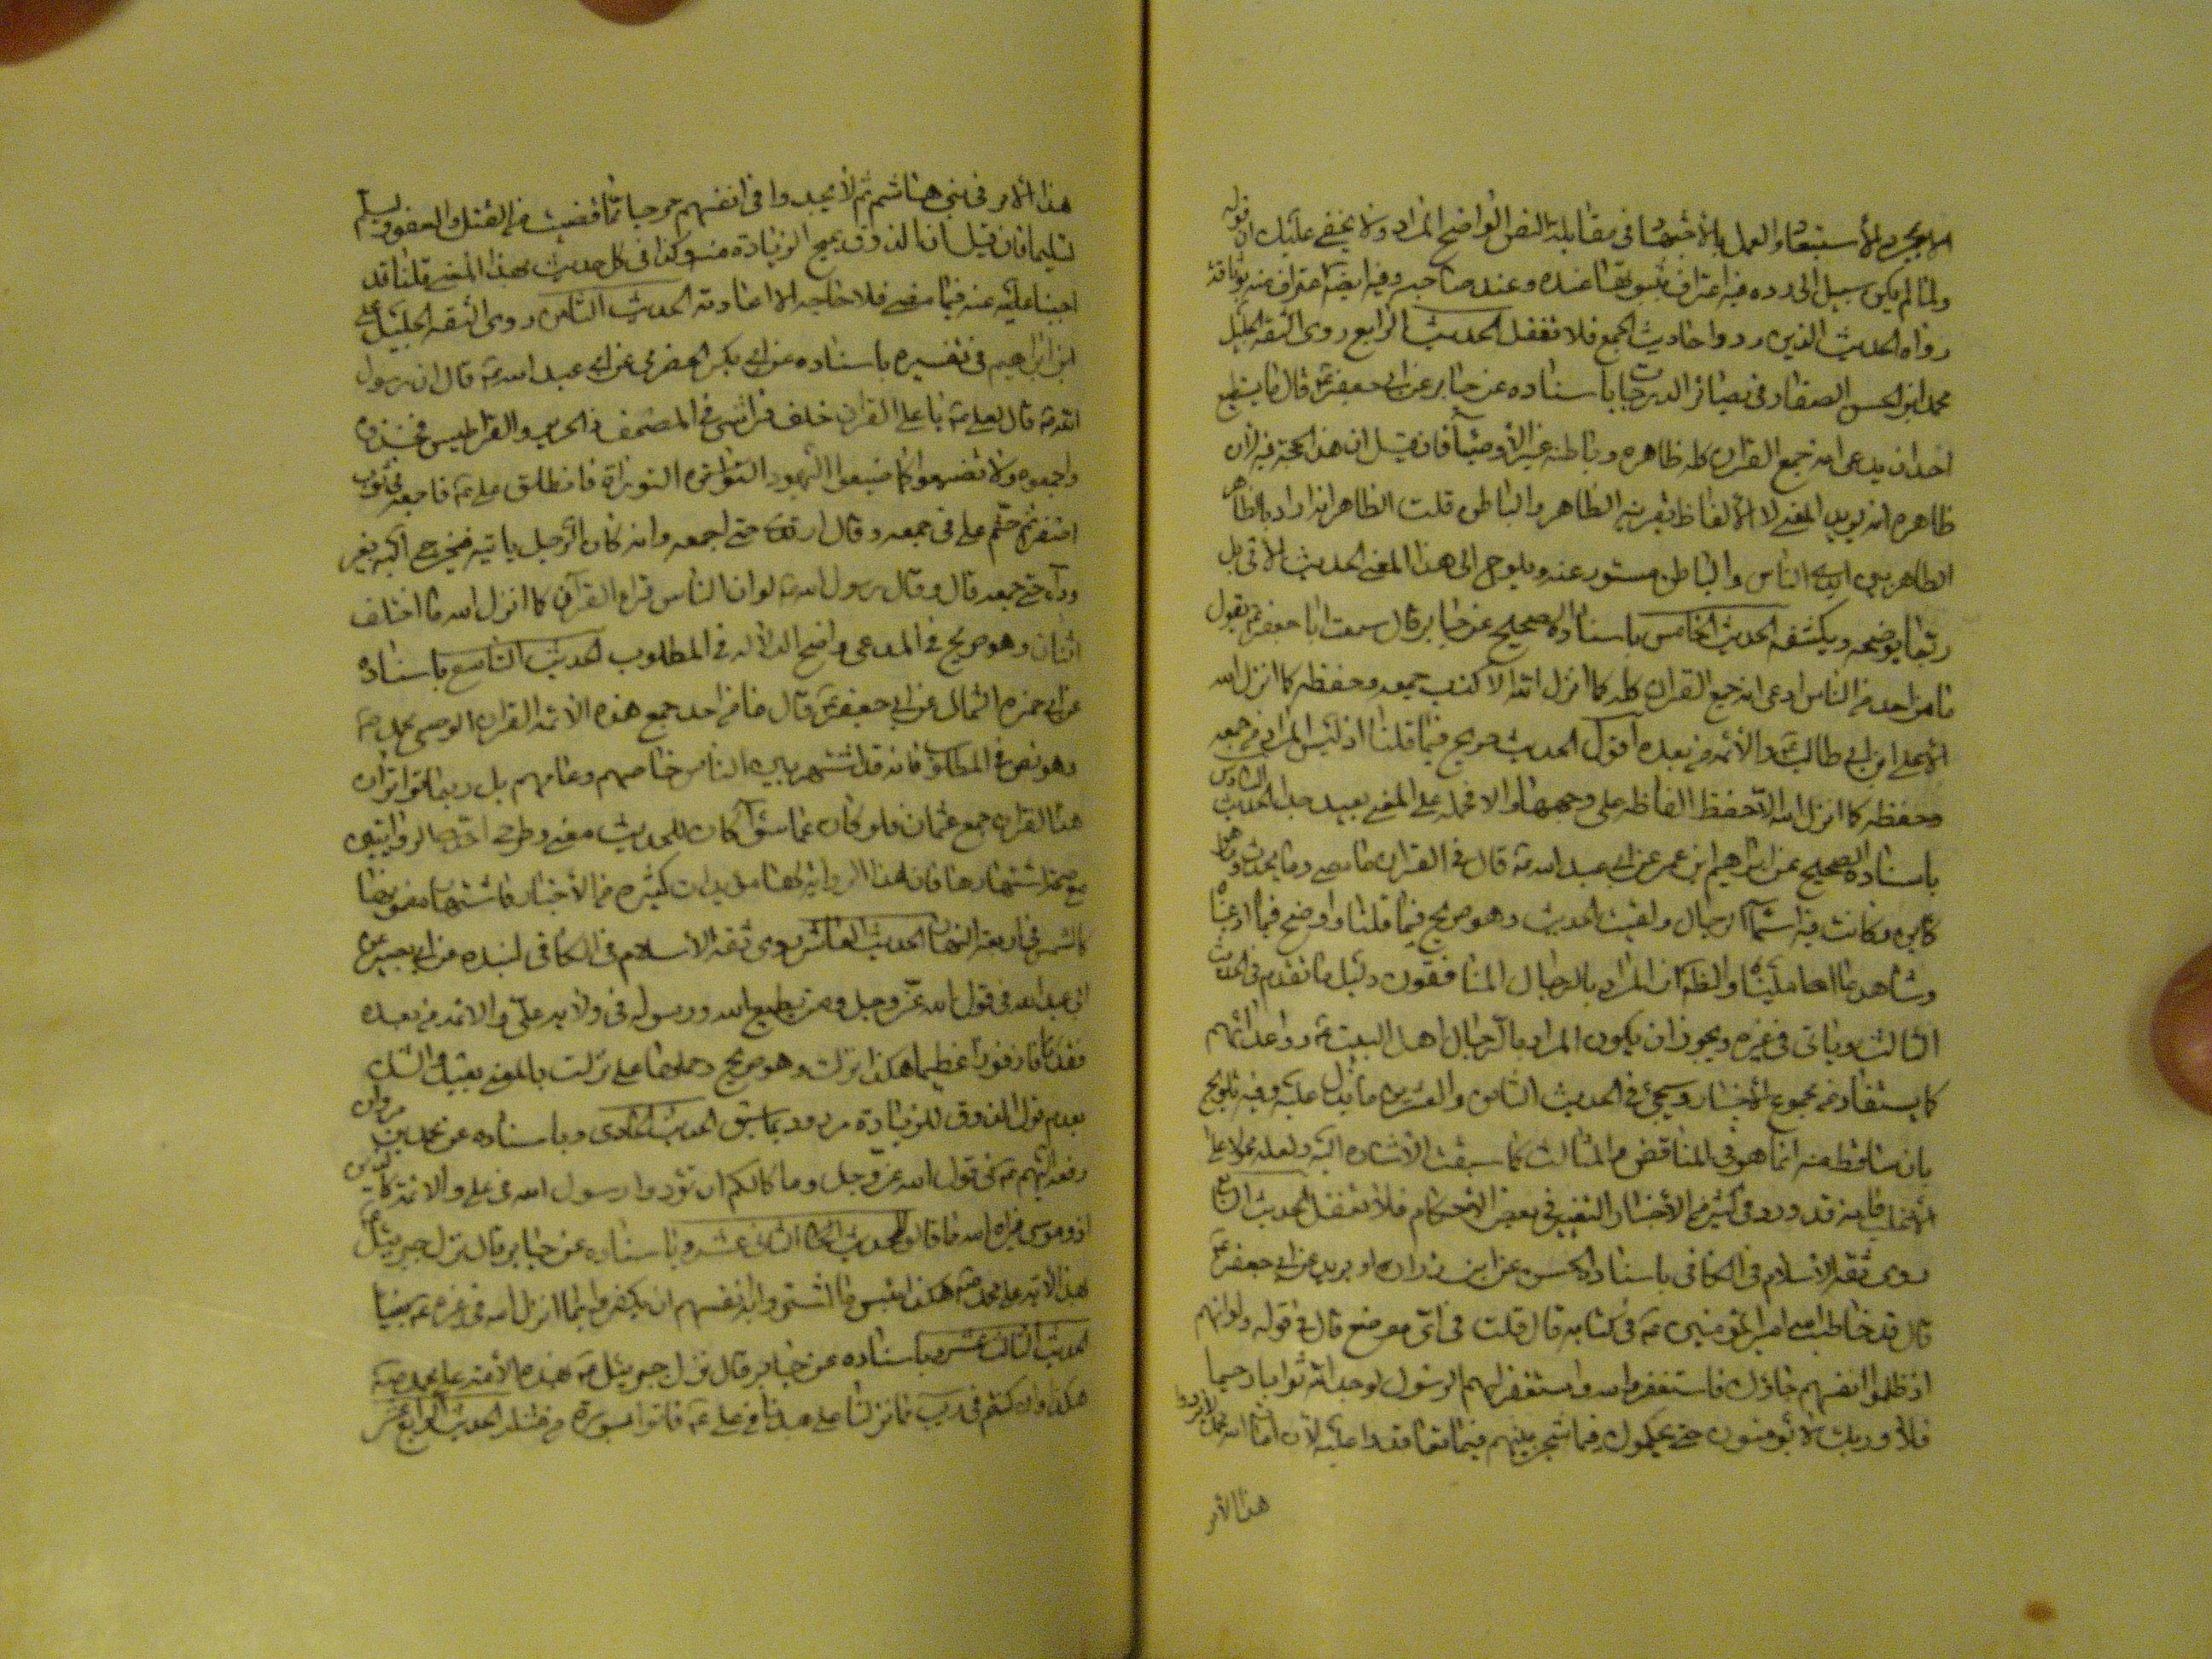 الا مجرد الاستبعاد والعمل بالاجتهاد في مقابلة النص الواضح المراد ولا يخفى عليك ان قوله
ولما لم يكن سبيل الى رده فيه اعتراف بثبوتها عنده وعند صاحبه وفيه ايضا اعتراف منه بوثاقة
رواه الحديث الذين رووا احاديث الجمع فلا تغفل الحديث الرابع روى الثقة الجليل
محمد ابن الحسن الصفار في بصائر الدرجات باسناده عن جابر عن ابي جعفر ع قال ما يستطيع
احد ان يدعي انه جمع القران كله ظاهره وباطنه غير الاوصياء فان قيل ان هذا لا حجة فيه لان
ظاهره انه يريد المعنى لا الالفاظ بقرينة الظاهر والباطن قلت الظاهر انه اراد بالظاهر
الظاهر بين ايدي الناس والباطن مستور عنه ويلوح الى هذا المعنى الحديث الاتي بل
ربما يوضحه ويكشفه الحديث الخامس باسناده الصحيح عن جابر قال سمعت ابا جعفر ع يقول
ما من احد من الناس ادعى انه جمع القران كله كما انزل الله الا كذب وما جمعه وحفظه كما انزل الله
الا علي ابن ابي طالب ع والائمة من بعده اقول الحديث صريح فيما قلنا اذ ليس المراد من جمعه
وحفظه كما انزل الله الا حفظ الفاظه على وجهها والا فحمله على المعنى بعيد جدا الحديث السادس
باسناده الصحيح عن ابراهيم ابن عمر عن ابي عبد الله ع قال في القران ما مضى وما يحدث وما هو
كاين وكانت فيه اسماء الرجال فالقيت الحديث وهو صريح فيما قلنا واوضح فيما ادعينا
وشاهدنا لما علينا والظاهر ان المراد بالرجال المنافقون دليل ما تقدم في الحديث
الثالث وياتي في غيره ويجوز ان يكون المراد بالرجال اهل البيت ع واعدائهم
كما يستفاد من مجموع الاخبار وسيجئ في الحديث الثامن والعشرين ما يدل عليه وفيه تلويح
بان ساقط منه انما هو في المناقض والمثالث كما سبقت الاشارة اليه ولعله محمولا على
الاغلب فانه قد ورد في كثير من الاخبار التغيير في بعض الاحكام فلا تغفل الحديث السابع
روى ثقة الاسلام في الكافي باسناد الحسن عن ابن زرارة او بريد عن ابي جعفر ع
قال قد خاطب الله امير المؤمنين ع في كتابه قال قلت في اي موضع قال في قوله ولو انهم
اذ ظلموا انفسهم جاؤك فاستغفروا الله واستغفر لهم الرسول لوجدوا الله توابا رحيما
فلا وربك لا يؤمنون حتى يحكموك فيما شجر بينهم فيما تعاقدوا عليه لان امات الله محمدا لا يردوا
هذا الامر
هذا الامر في بني هاشم ثم لا يجدوا في انفسهم حرجا مما قضيت من القتل والعفو ويسلموا
تسليما فان قيل ان الصدوق يمنع الزيادة منه وكذا في كل حديث بهذا المعنى قلنا قد
اجبنا عليه عنه فيما مضى فلا حاجة الا اعادته الحديث الثامن روى الثقة الجليل علي
ابن ابراهيم في تفسيره باسناده عن ابي بكر الحضرمي عن ابي عبد الله ع قال ان رسول
الله ص قال لعلي ع يا علي القران خلف فراشي في المصحف والحرير والقراطيس فخذوه
واجمعوه ولا تضيعوا كما ضيعوا اليهود التوراة فانطلق علي ع فاجمعه في ثوب
اصفر ثم ختم علي في جمعه وقال لا ارتدي حتى اجمعه وانه كان الرجل ياتيه فيخرج اليه بغير
رداء حتى جمعه قال وقال رسول الله ص لو ان الناس قراوا القرآن كما انزل الله ما اختلف
اثنان وهو صريح في المدعى واضح الدلالة في المطلوب الحديث التاسع باسناده
عن ابي حمزه الثمالي عن ابي جعفر ع قال ما من احد جمع هذه الائمه القران الا وصي محمد ص
وهو نص في المطلوب فانه قد اشتهر بين الناس خاصهم وعامهم بل ربما تواتر ان
هذا القران جمع عثمان فلو كان كما كان للحديث معنى وطرح احد الروايتين
مع صحة اشتهارها فان هذا الرواية لها مؤيدات كثيره من الاخبار فاشتهار مضمونها
كالشمس في رابعة النهار الحديث العاشر روى ثقة الاسلام في الكافي بسنده عن ابي بصير عن
ابي عبد الله في قول الله عز وجل ومن يطيع الله ورسوله في ولاية علي والائمه من بعده
فقد فاز فوزا عظيما هكذا نزلت وهو صريح وحملها على نزلت بالمعنى
بعدم قول الصدوق للزيادة مردود بما سبق الحديث الحادي وباسناده عن محمد بن مروان
رفعه اليهم ع في قول الله عز وجل وما كان لكم ان تؤذوا رسول الله في علي والائمة كالذين
اذوا موسى فبراه الله مما قالوا الحديث الثاني عشر وباسناده عن جابر قال نزل جبرئيل
بهذا الاية على محمد ص هكذا بئس ما اشتروا به انفسهم ان يكفروا بما انزل الله في علي ع بغيا
الحديث الثالث عشر باسناده عن جابر قال نزل جبرئيل ع بهذه الاية على محمد ص
هكذا وان كنتم في ريب مما نزلنا على عبدنا في علي ع فاتوا بسورة من مثله الحديث الرابع عشر